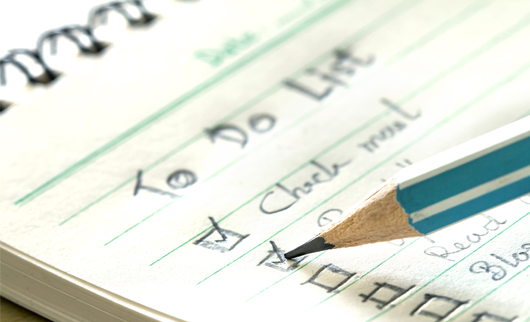 Date
To Do List
Check mail
Read